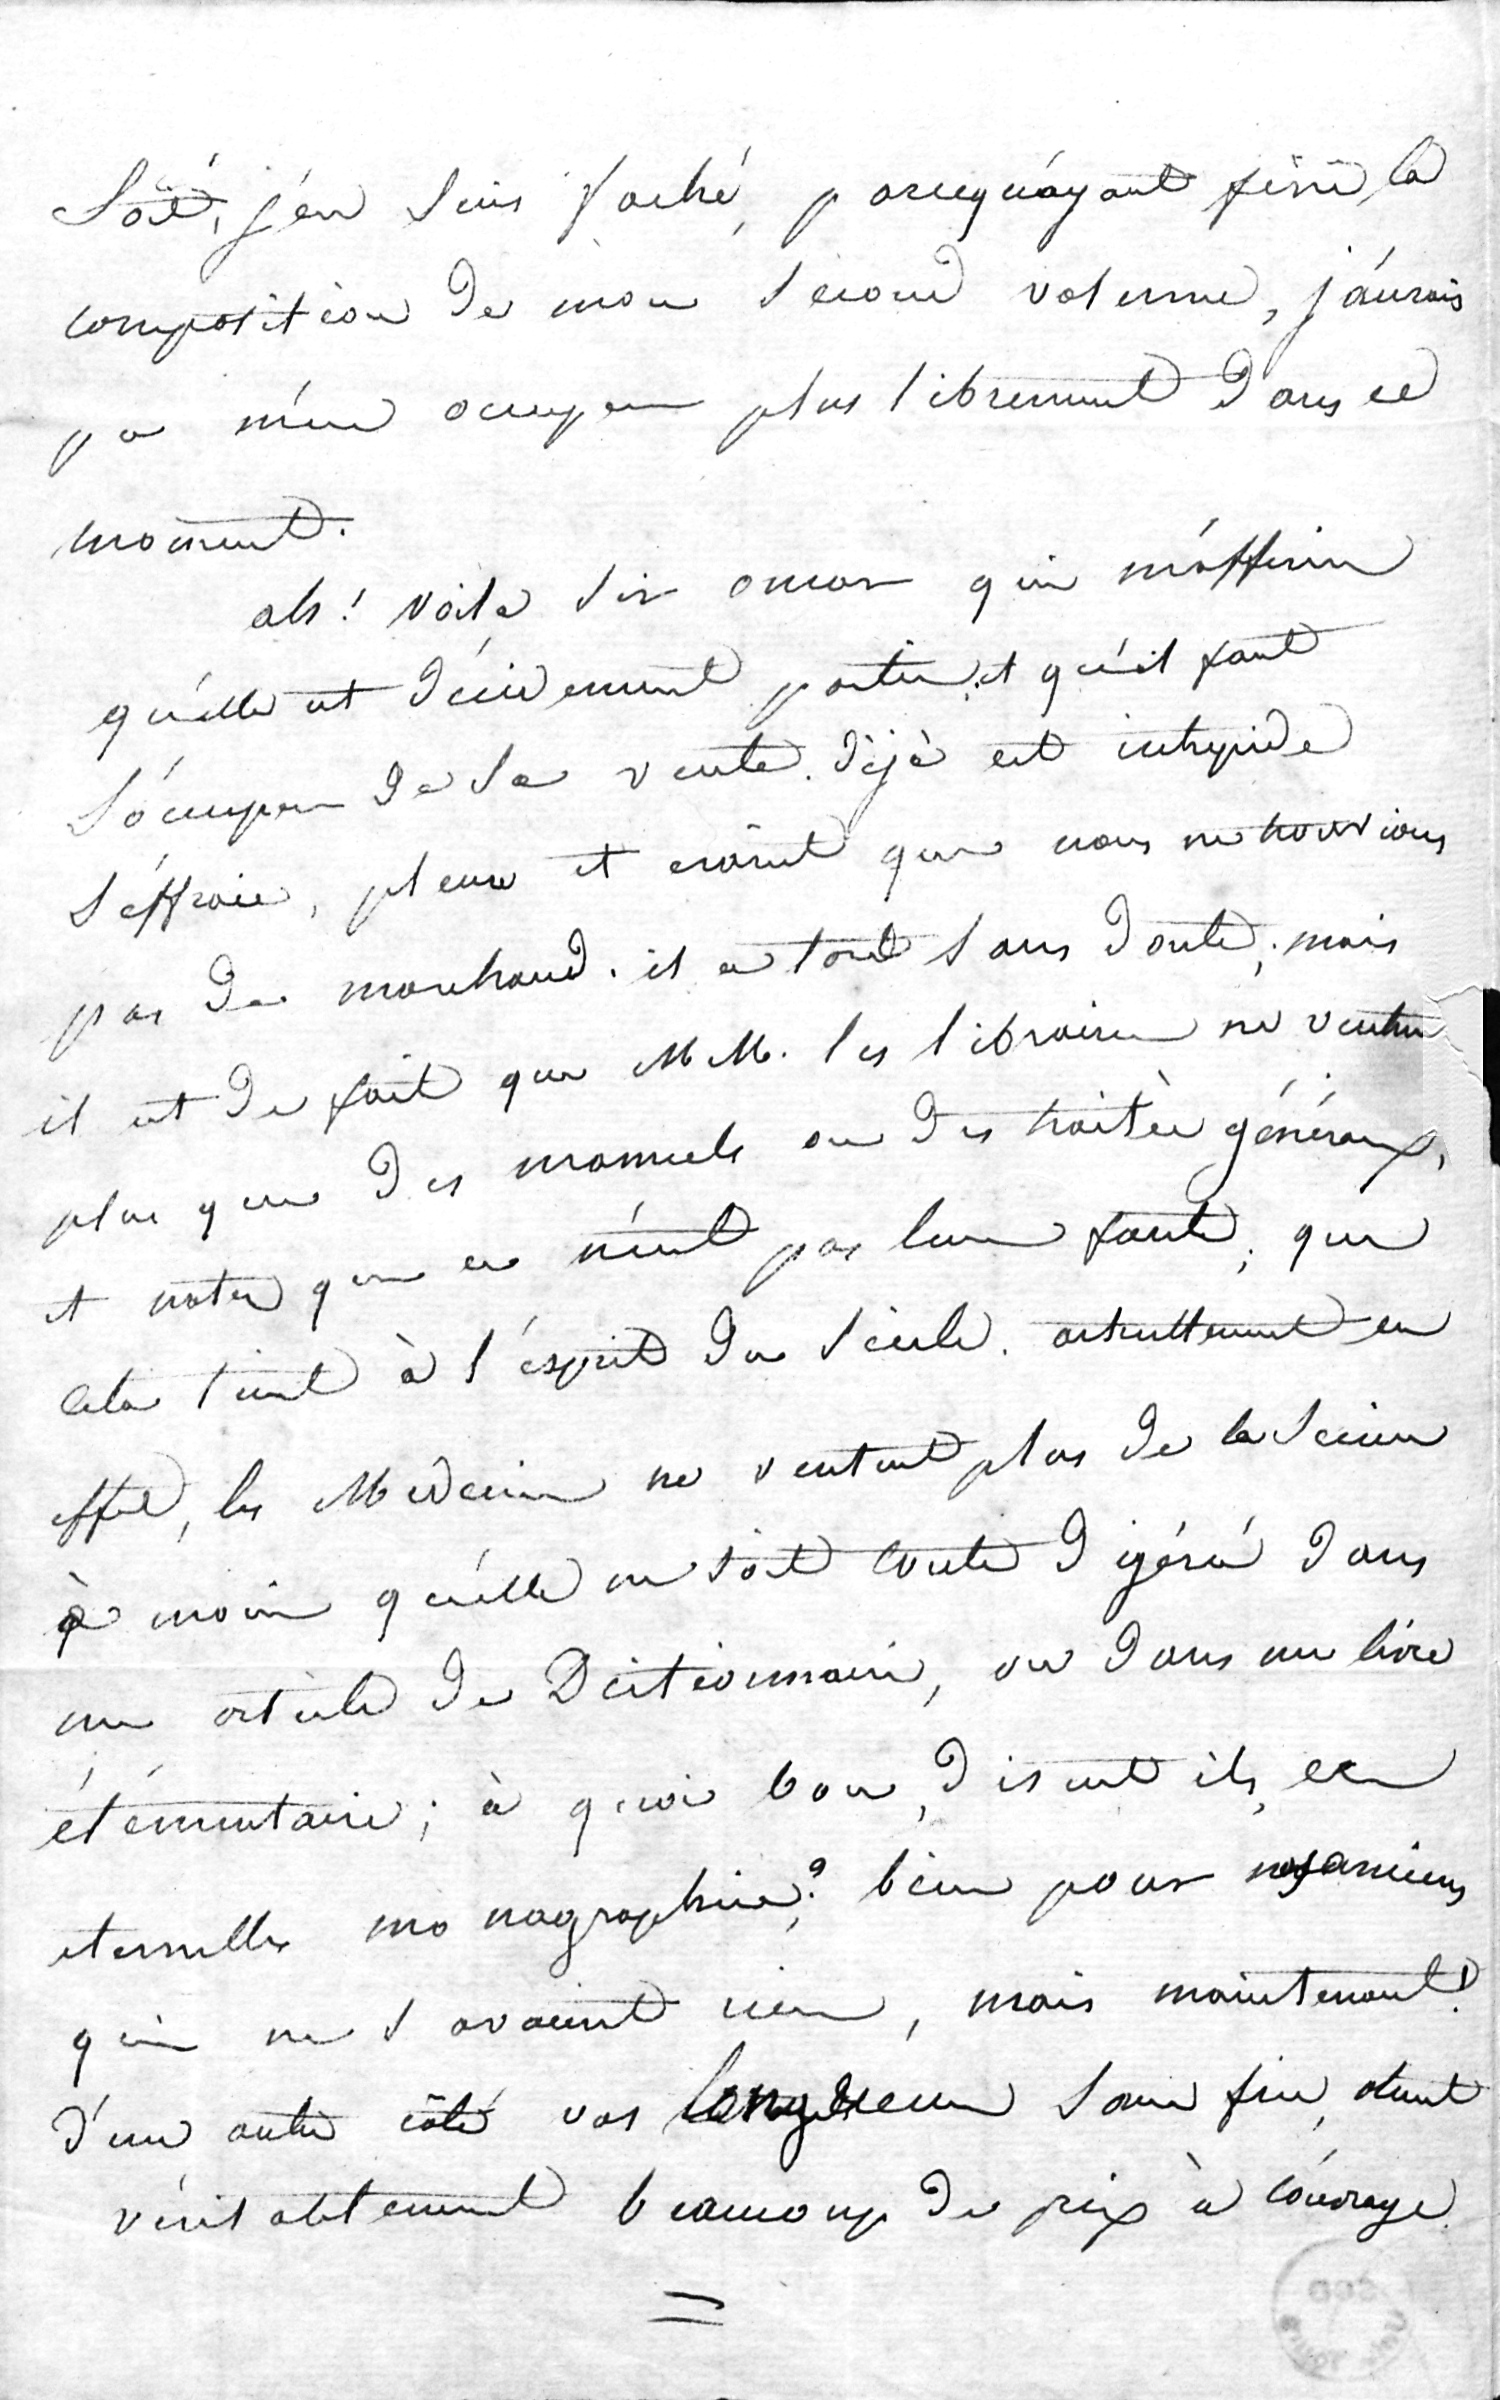 Soit, j'en suis faché, parcequ'ayant fini la
composition de mon second volume, j'aurais
pu m'en occuper plus librement dans ce
moment.
ah! voila qui
qu'elle est décidement partie, et qu'il faut
s'occuper de sa vente. déjà cet intrepide
s'effraie, pleure et craint que nous ne trouvions
pas de marchand. il a tort sans doute, mais
il est de fait que MM. les libraires ne veulent
plus que des manuels ou des traités généraux,
et notez que ce n'est pas leur faute, que
cela tient à l'esprit du siècle. actuellement en
effet, les Medecins ne veulent plus de la science
à moins qu'elle ne soit toute digérée dans
un article de Dictionnaire, ou dans un livre
élémentaire; à quoi bon, disent ils, ces
eternelles monographies? bien pour nos anciens
qui ne savaient rien, mais maintenant!
d'un autre côté vos longueurs sans fin, otent
véritablement beaucoup de prix à l'ouvrage